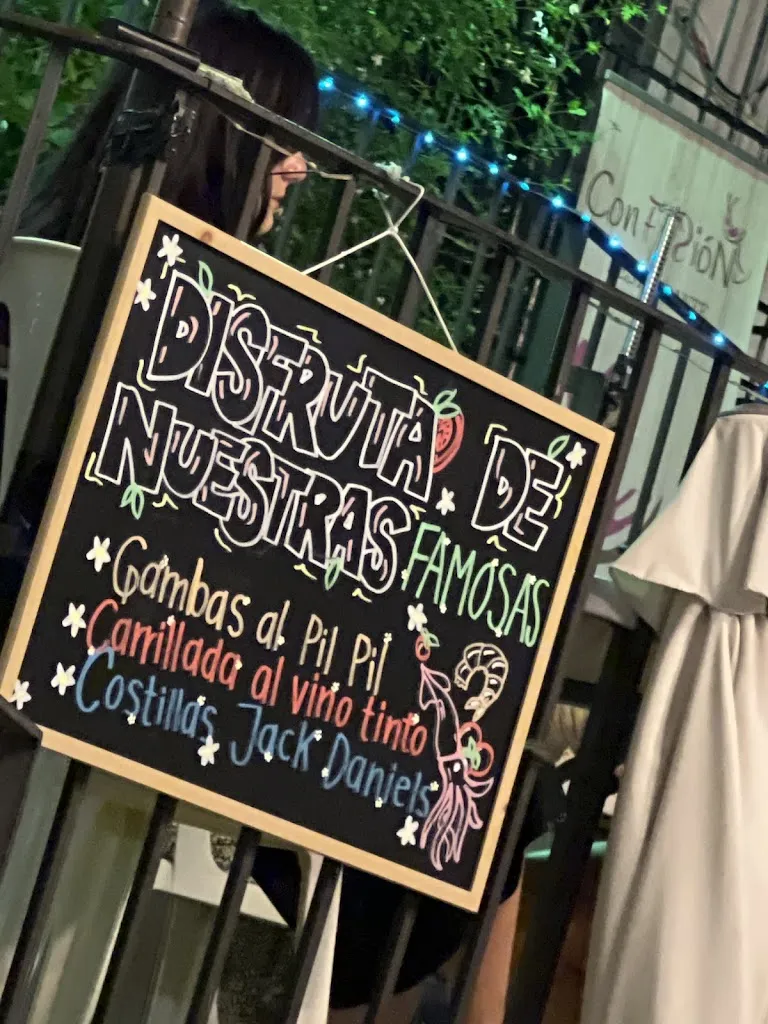 DISFRUTA DE
NUESTRAS FAMOSAS
Gambas al Pil Pil
Carrillada al vino tinto
Costillas Jack Daniels
Con Fusión